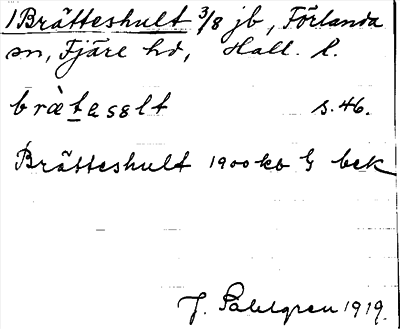 1 Brätteshult 3/8 jb, Förlanda
sn, Fjäre hd, Hall. l.
brὰtasalt s.46.
Brätteshult 1900 kb bek
J. Sahlgren 1919.